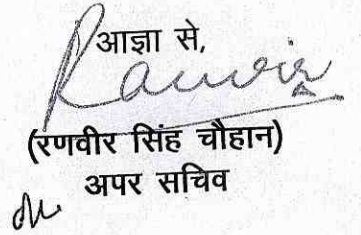 आज्ञा से,
Ranvir
(रणवीर सिंह चौहान)
अपर सचिव